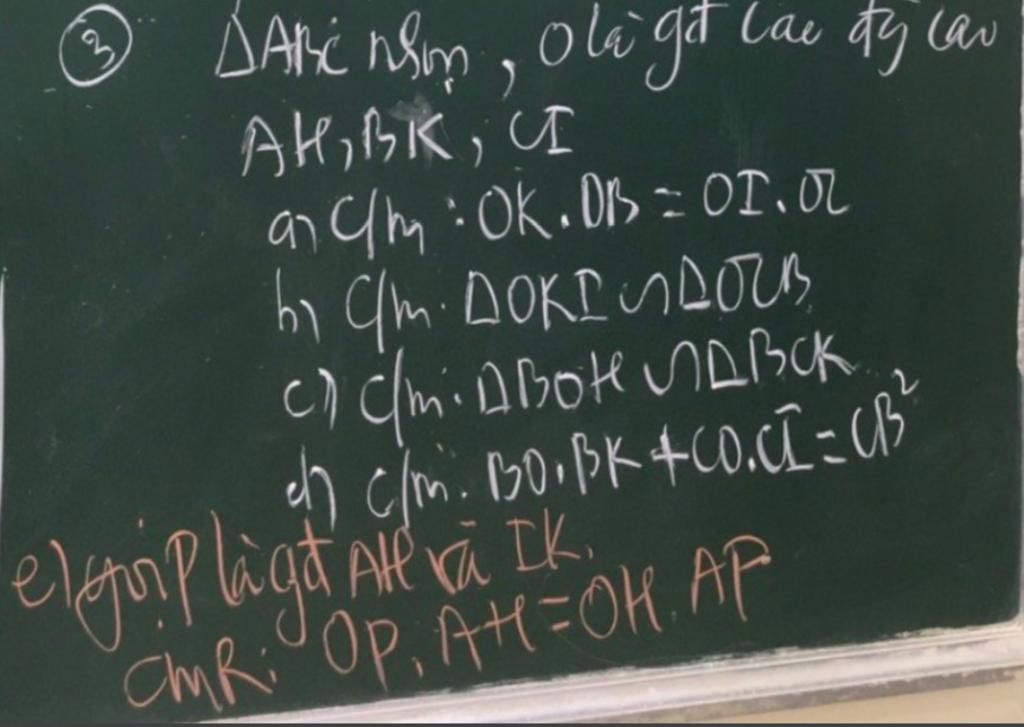 ③ ΔABC nhọn, O là gđ các đg cao
AH, BK, CI
a) C/m: OK.OB = OI.OC
b) C/m. ΔOKI ∽ ΔOCB
c) C/m. ΔBOH ∽ ΔBCK
d) C/m. BO.BK + CO.CI = CB²
e) gọi P là gđ AH và IK.
CMR: OP.AH = OH.AP